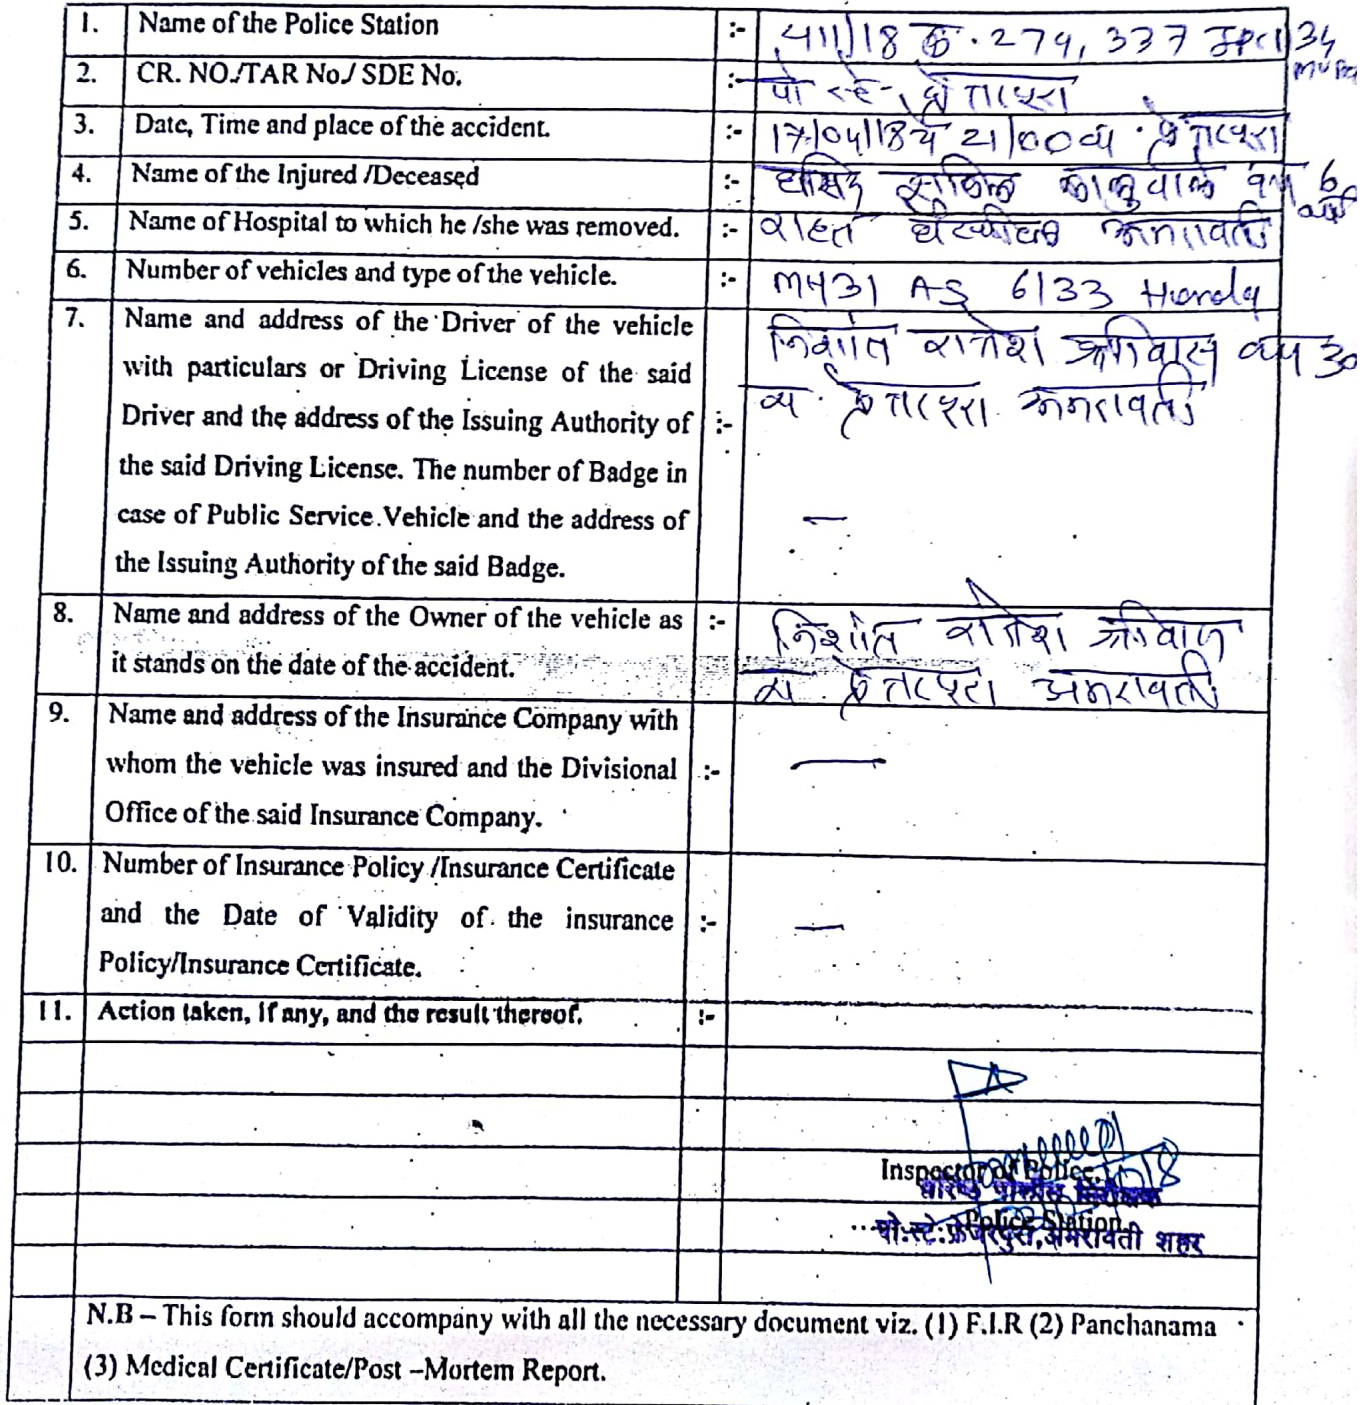 1. Name of the Police Station :- 411/18 क. 279, 337
2. CR. NO./TAR No./ SDE No. :- पो स्टे
3. Date, Time and place of the accident. :- 17/04/18 चे 21/00
4. Name of the Injured /Deceased :- वय 6
5. Name of Hospital to which he /she was removed. :- अमरावती
6. Number of vehicles and type of the vehicle. :- MH31 AS 6133 Honda
7. Name and address of the Driver of the vehicle :- निशांत राजेश श्रीवास वय 30
with particulars or Driving License of the said
Driver and the address of the Issuing Authority of अमरावती
the said Driving License. The number of Badge in
case of Public Service Vehicle and the address of —
the Issuing Authority of the said Badge.
8. Name and address of the Owner of the vehicle as :- निशांत राजेश श्रीवास
it stands on the date of the accident. अमरावती
9. Name and address of the Insurance Company with
whom the vehicle was insured and the Divisional :- —
Office of the said Insurance Company.
10. Number of Insurance Policy /Insurance Certificate
and the Date of Validity of the insurance :- —
Policy/Insurance Certificate.
11. Action taken, if any, and the result thereof. :-
Inspector of Police
पोलीस निरीक्षक
Police Station
पो.स्टे.फ्रेजरपुरा,अमरावती शहर
N.B – This form should accompany with all the necessary document viz. (1) F.I.R (2) Panchanama
(3) Medical Certificate/Post –Mortem Report.